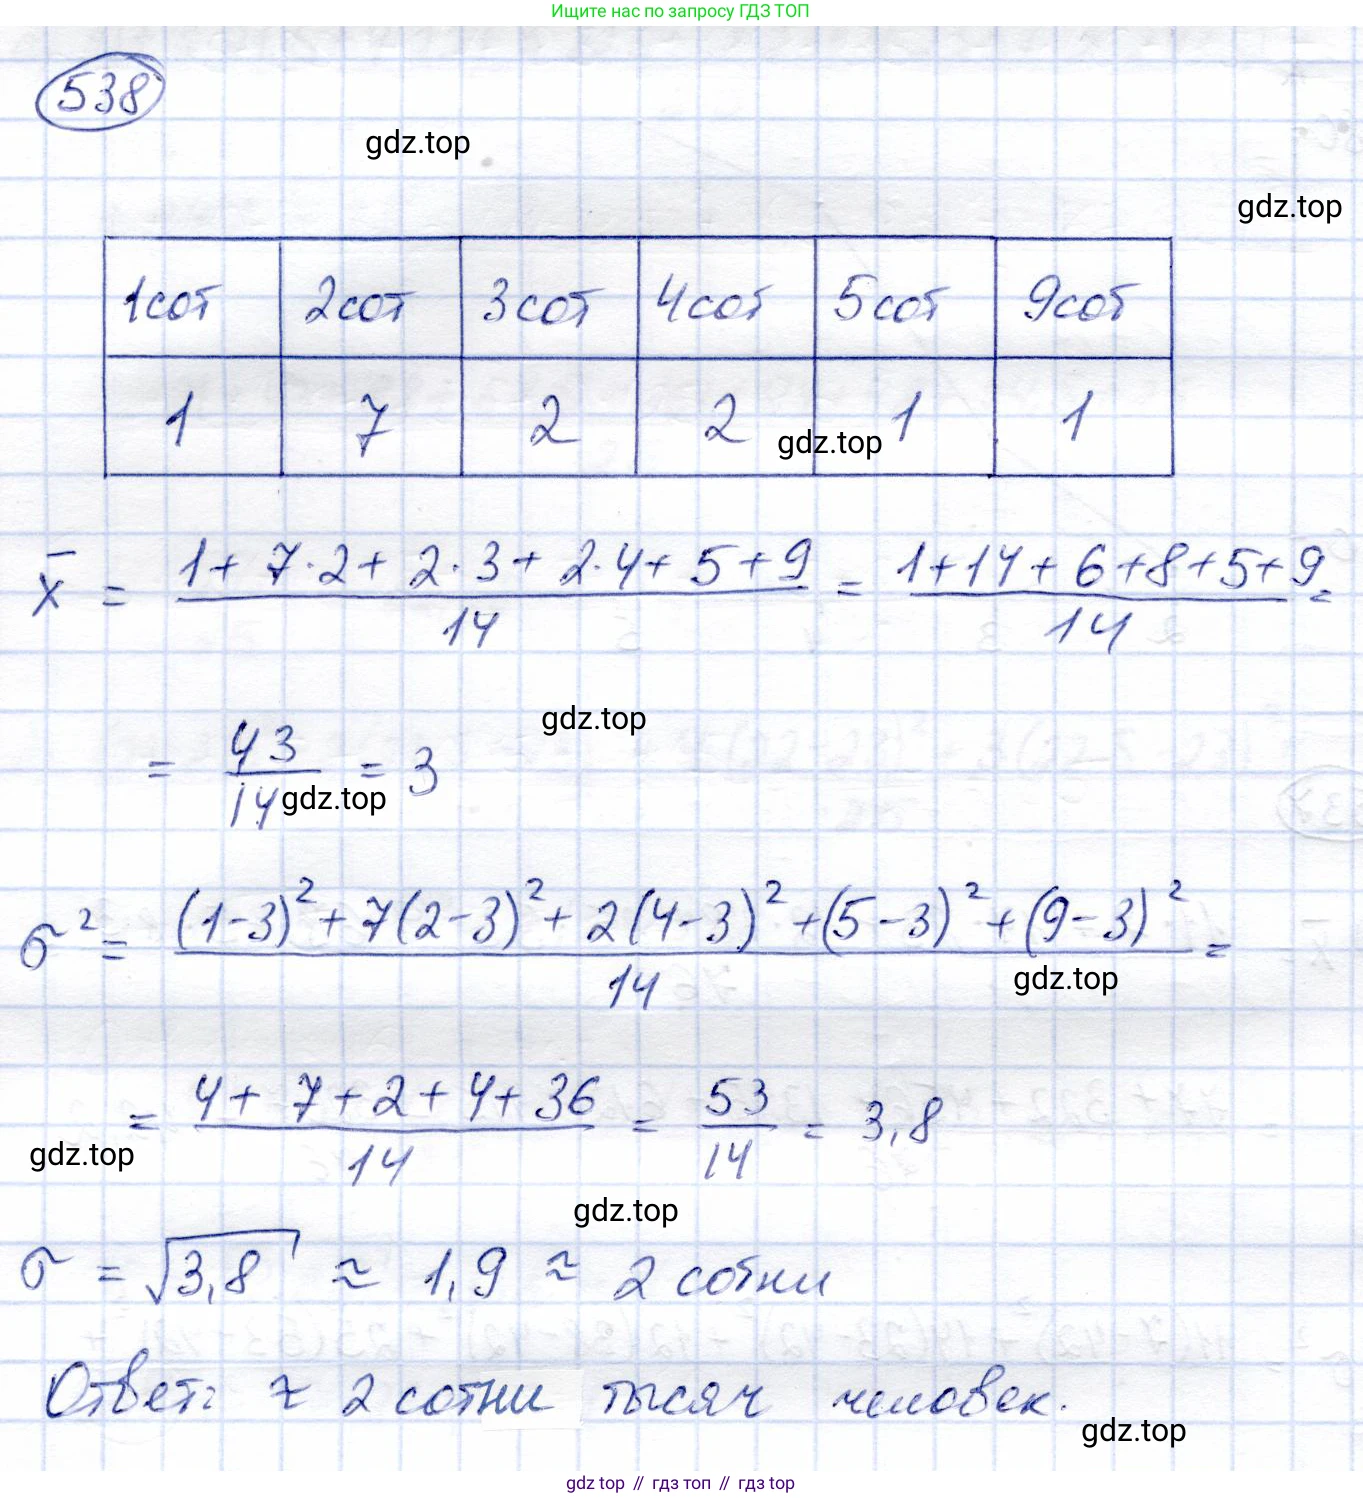 Ищите нас по запросу ГДЗ ТОП
538
gdz.top
gdz.top
1сот 2сот 3сот 4сот 5сот 9сот
1 7 2 2 1 1
gdz.top
x̄ = (1 + 7·2 + 2·3 + 2·4 + 5 + 9)/14 = (1+14+6+8+5+9)/14 =
gdz.top
= 43/14 = 3
gdz.top
σ² = ((1-3)² + 7(2-3)² + 2(4-3)² + (5-3)² + (9-3)²)/14 =
gdz.top
= (4+7+2+4+36)/14 = 53/14 = 3,8
gdz.top
gdz.top
σ = √3,8 ≈ 1,9 ≈ 2 сотни
Ответ: ≈ 2 сотни тысяч человек.
gdz.top
gdz top // гдз топ // гдз top